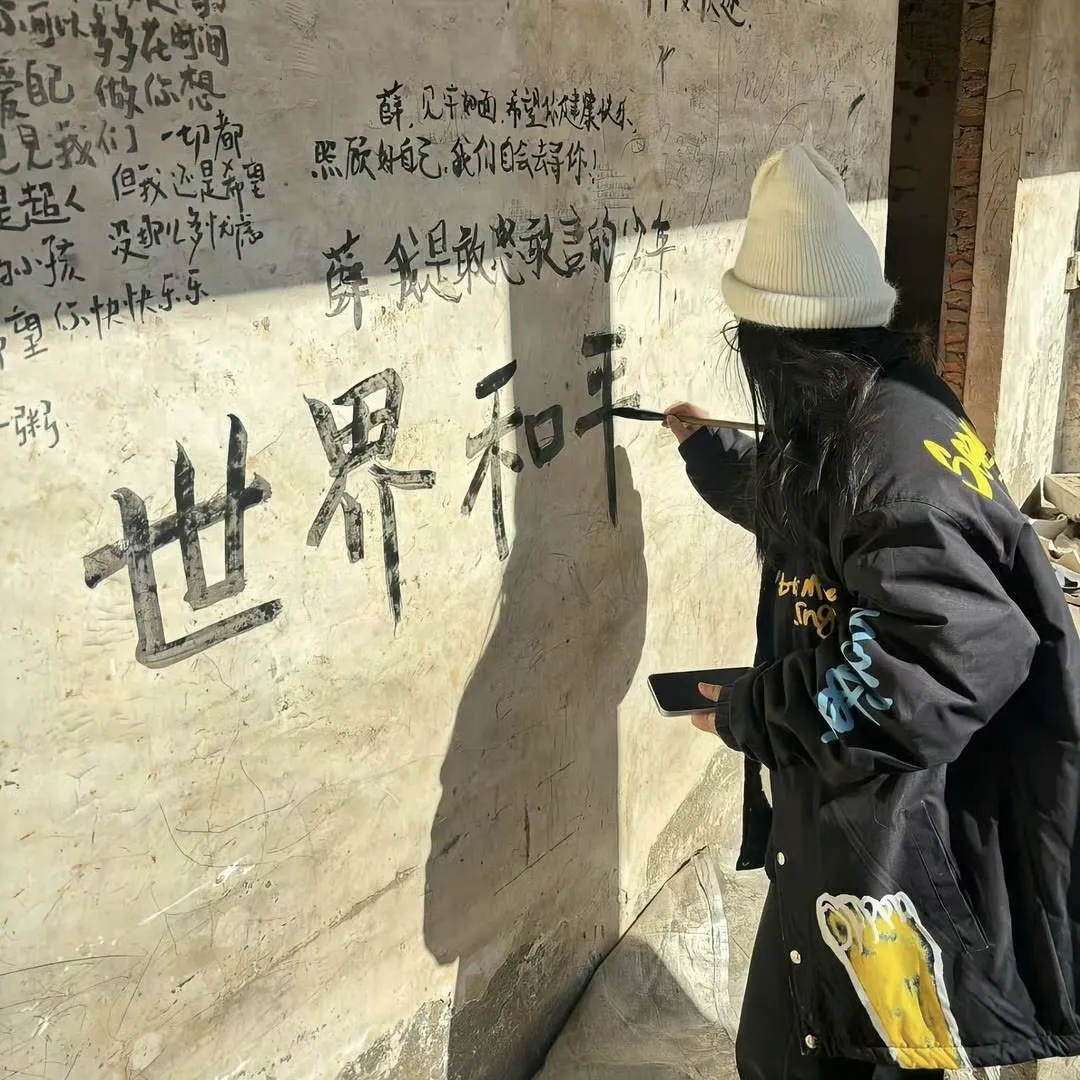 可以多多花时间
爱自己 做你想
见我们 一切都
是超人 但我还是希望
小孩 没那么多忧虑
望你快快乐乐
一粥
薛,见字如面,希望你健康快乐,
照顾好自己,我们自会去寻你!
薛 我是敢怒敢言的少年
世界和平
Me
Sing